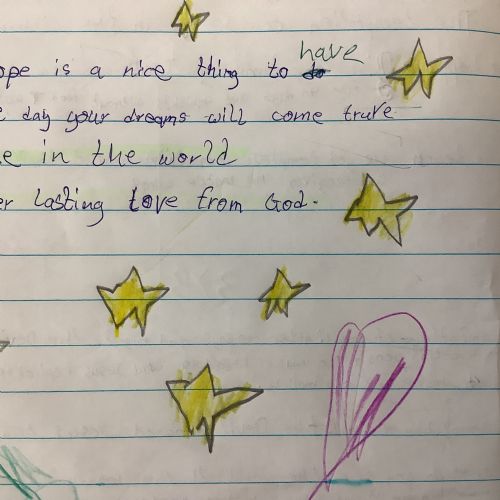 ope is a nice thing to have
e day your dreams will come trure
e in the world
er lasting love from God.